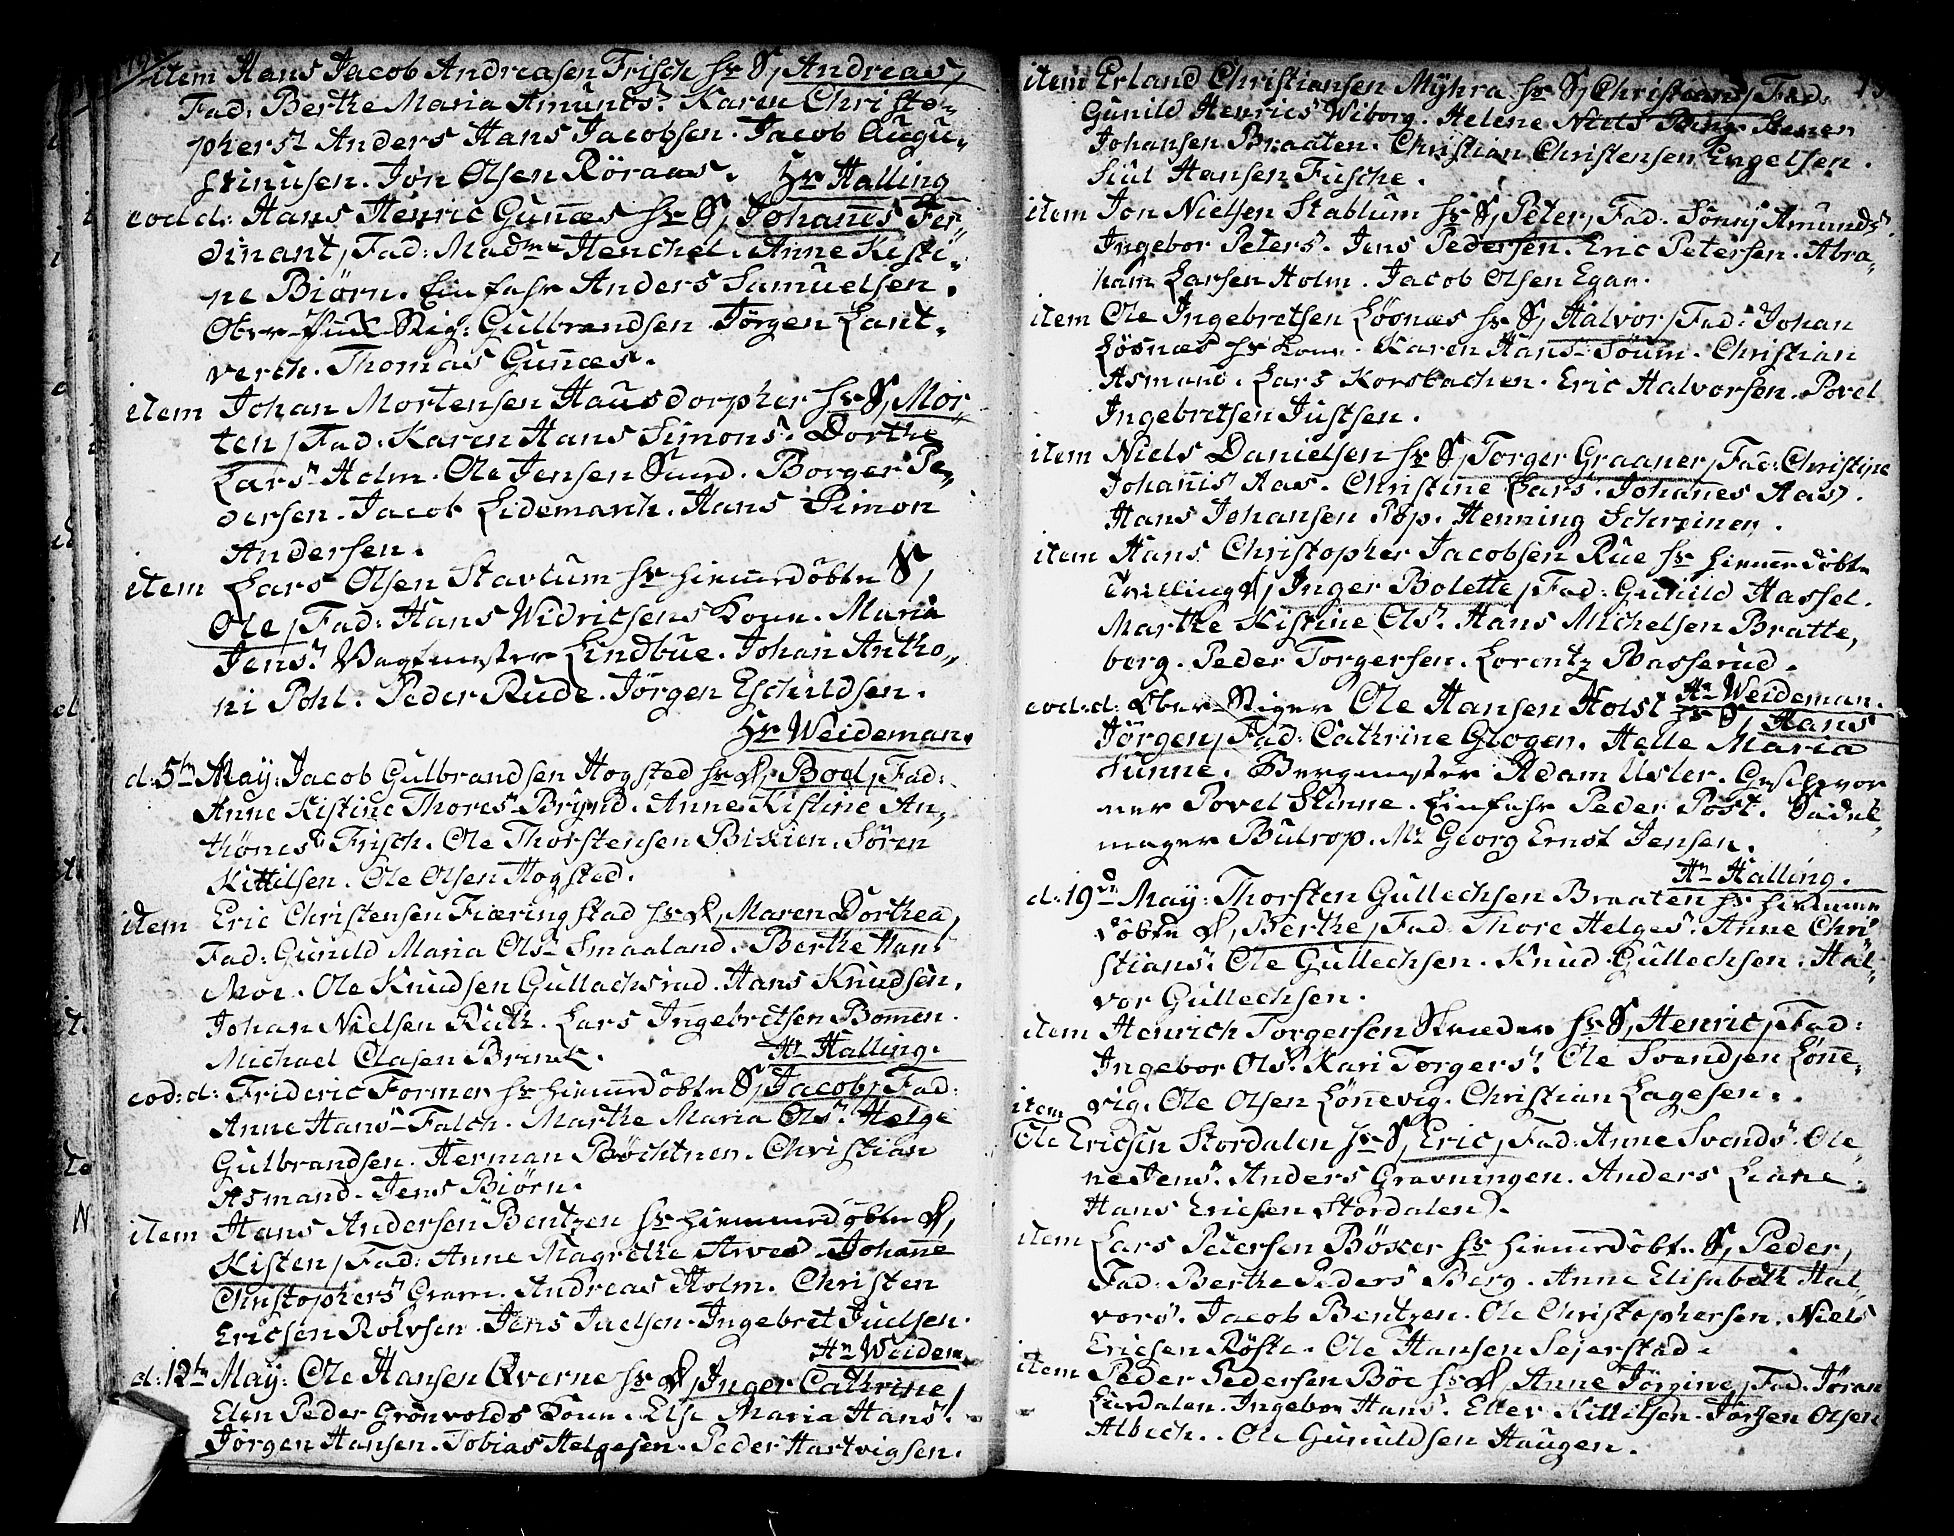 item Hans Jacob Andreasen Frisch hr S, Andreas,
Fad: Berthe Maria Amunds. Karen Christo-
phers Anders Hans Jacobsen. Jacob Augu-
stinusen. Jon Olsen Röraas. Hr Halling
eod d: Hans Henric Guñæs hr S, Johañes Fer-
dinant, Fad: Madme Henchel. Anne Kisti-
ne Biörn. Einfahr Anders Samuelsen.
Ober Stig: Gulbrandsen Jörgen Lant-
werch. Thomas Guñæs.
item Johan Mortensen Hausdorpher hr S, Mor-
ten, Fad: Karen Hans Simons. Dorthe
Lars Holm. Ole Jensen Sund. Borger Pe-
dersen. Jacob Lidemarch. Hans Simon
Andersen.
item Lars Olsen Stavlum hr hiem̄edöbte S,
Ole, Fad: Hans Widricsens Kone. Maria
Jens. Vagtmester Lindbüe. Johan Antho-
ni Pohl. Peder Rude. Jörgen Eschildsen.
Hr Weideman.
d: 5te May: Jacob Gulbrandsen Hogsted hr D, Boel, Fad:
Anne Kistine Thores Brynd. Anne Kistine An-
thönes Frisch. Ole Thorstensen Bikien. Sören
Kittilsen. Ole Olsen Hogsted.
item Eric Christensen Fiæringstad hr D, Maren Dorthea,
Fad: Gunild Maria Ols Smaaland. Berthe Hans
Moe. Ole Knudsen Gullachsrud. Hans Knudsen.
Johan Nielsen Ruth. Lars Ingebretsen Bom̄en.
Michael Clasen Brinck. Hr Halling.
eod: d: Frideric Former hr hiem̄edöbte S, Jacob, Fad:
Anne Hans Falch. Marthe Maria Ols. Helge
Gulbrandsen. Herman Böchtner. Christian
Asmand. Jens Biörn.
item Hans Andersen Bentzen hr hiemmedöbte D,
Kisten, Fad: Anne Magrethe Arved. Johañe
Christophers Gram. Andreas Holm. Christen
Ericsen Rolvsen. Jens Juelsen. Ingebret Juelsen.
Hr Weidem.
d: 12te May: Ole Hansen Qverne hr D, Inger Cathrine,
Elen Peder Grönvolds Kone. Else Maria Hans.
Jörgen Hansen. Tobias Helgesen. Peder Hartvigsen.
item Erland Christiansen Myhra hr S, Christians, Fad:
Gunild Henrics Wiborg. Helene Niels Berg. Stener
Johansen Braaten. Christian Christensen Engelsen.
Siul Hansen Fusche.
item Jon Nielsen Stablum hr S, Peter, Fad: Sönnj Amunds.
Ingebor Peters. Jens Pedersen. Eric Petersen. Abra-
ham Larsen Holm. Jacob Olsen Eger.
item Ole Ingebretsen Löönæs hr S, Halvor, Fad: Johan
Lösnæs hr Kone. Karen Hans Söum. Christian
Asmand. Lars Korsbachen. Eric Halvorsen. Povel
Ingebretsen Justsen.
item Niels Danielsen hr S, Torger Graaner, Fad: Christine
Johañis Aas. Christine Lars. Johañes Aas.
Hans Johansen Pop. Henning Schreiner.
item Hans Christopher Jacobsen Rue hr hiem̄edöbte
Tvilling D, Inger Bolette, Fad: Gunild Hassel.
Marthe Kistine Ols. Hans Michelsen Bratte-
berg. Peder Torgersen. Lorentz Basserud.
Hr Weideman.
eod: d: Ober-Stiger Ole Hansen Holst hr S, Hans
Jörgen, Fad: Cathrine Gloger. Helle Maria
Sunne. Bergmester Adam Usler. Geschwor
ner Povel Stinne. Einfahr Peder Post. Sadel-
mager Bulrop. Mr Georg Ernst Jensen.
Hr Halling.
d: 19de May: Thorsten Gullechsen Braaten hr hiemme
döbte D, Berthe, Fad: Thore Helges. Anne Chri-
stians. Ole Gullechsen. Knud Gullechsen. Hal-
vor Gullechsen.
item Henrich Torgersen Skreder hr S, Henric, Fad:
Ingebor Ols. Kari Torgers. Ole Svendsen Löñe-
vig. Ole Olsen Löñevig. Christian Lagesen.
item
Ole Ericsen Stordalen hr S, Eric, Fad: Anne Svends. Ole-
ne Jens. Anders Gravningen. Anders Liane.
Hans Ericsen Stordalen.
item Lars Petersen Böker hr hiem̄edöbte S, Peder,
Fad: Berthe Peders Berg. Anne Elisabeth Hal-
vors. Jacob Bentzen. Ole Christophersen. Niels
Ericsen Röste. Ole Hansen Sejerstad.
item Peder Pedersen Böe hr D, Anne Jörgine, Fad: Jöran
Lurdalen. Ingebor Hans. Eller Kittilsen. Jörgen Olsen
Albech. Ole Gunuldsen Haugen.